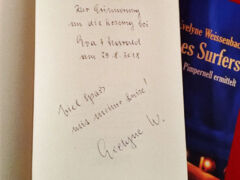 Zur Erinnerung
an die Lesung bei
Eva + Harald
am 29.8.2018
Viel Spaß
mit meiner Luise!
Evelyne W.
Evelyne Weissenbach
es Surfers
Pimpernell ermittelt